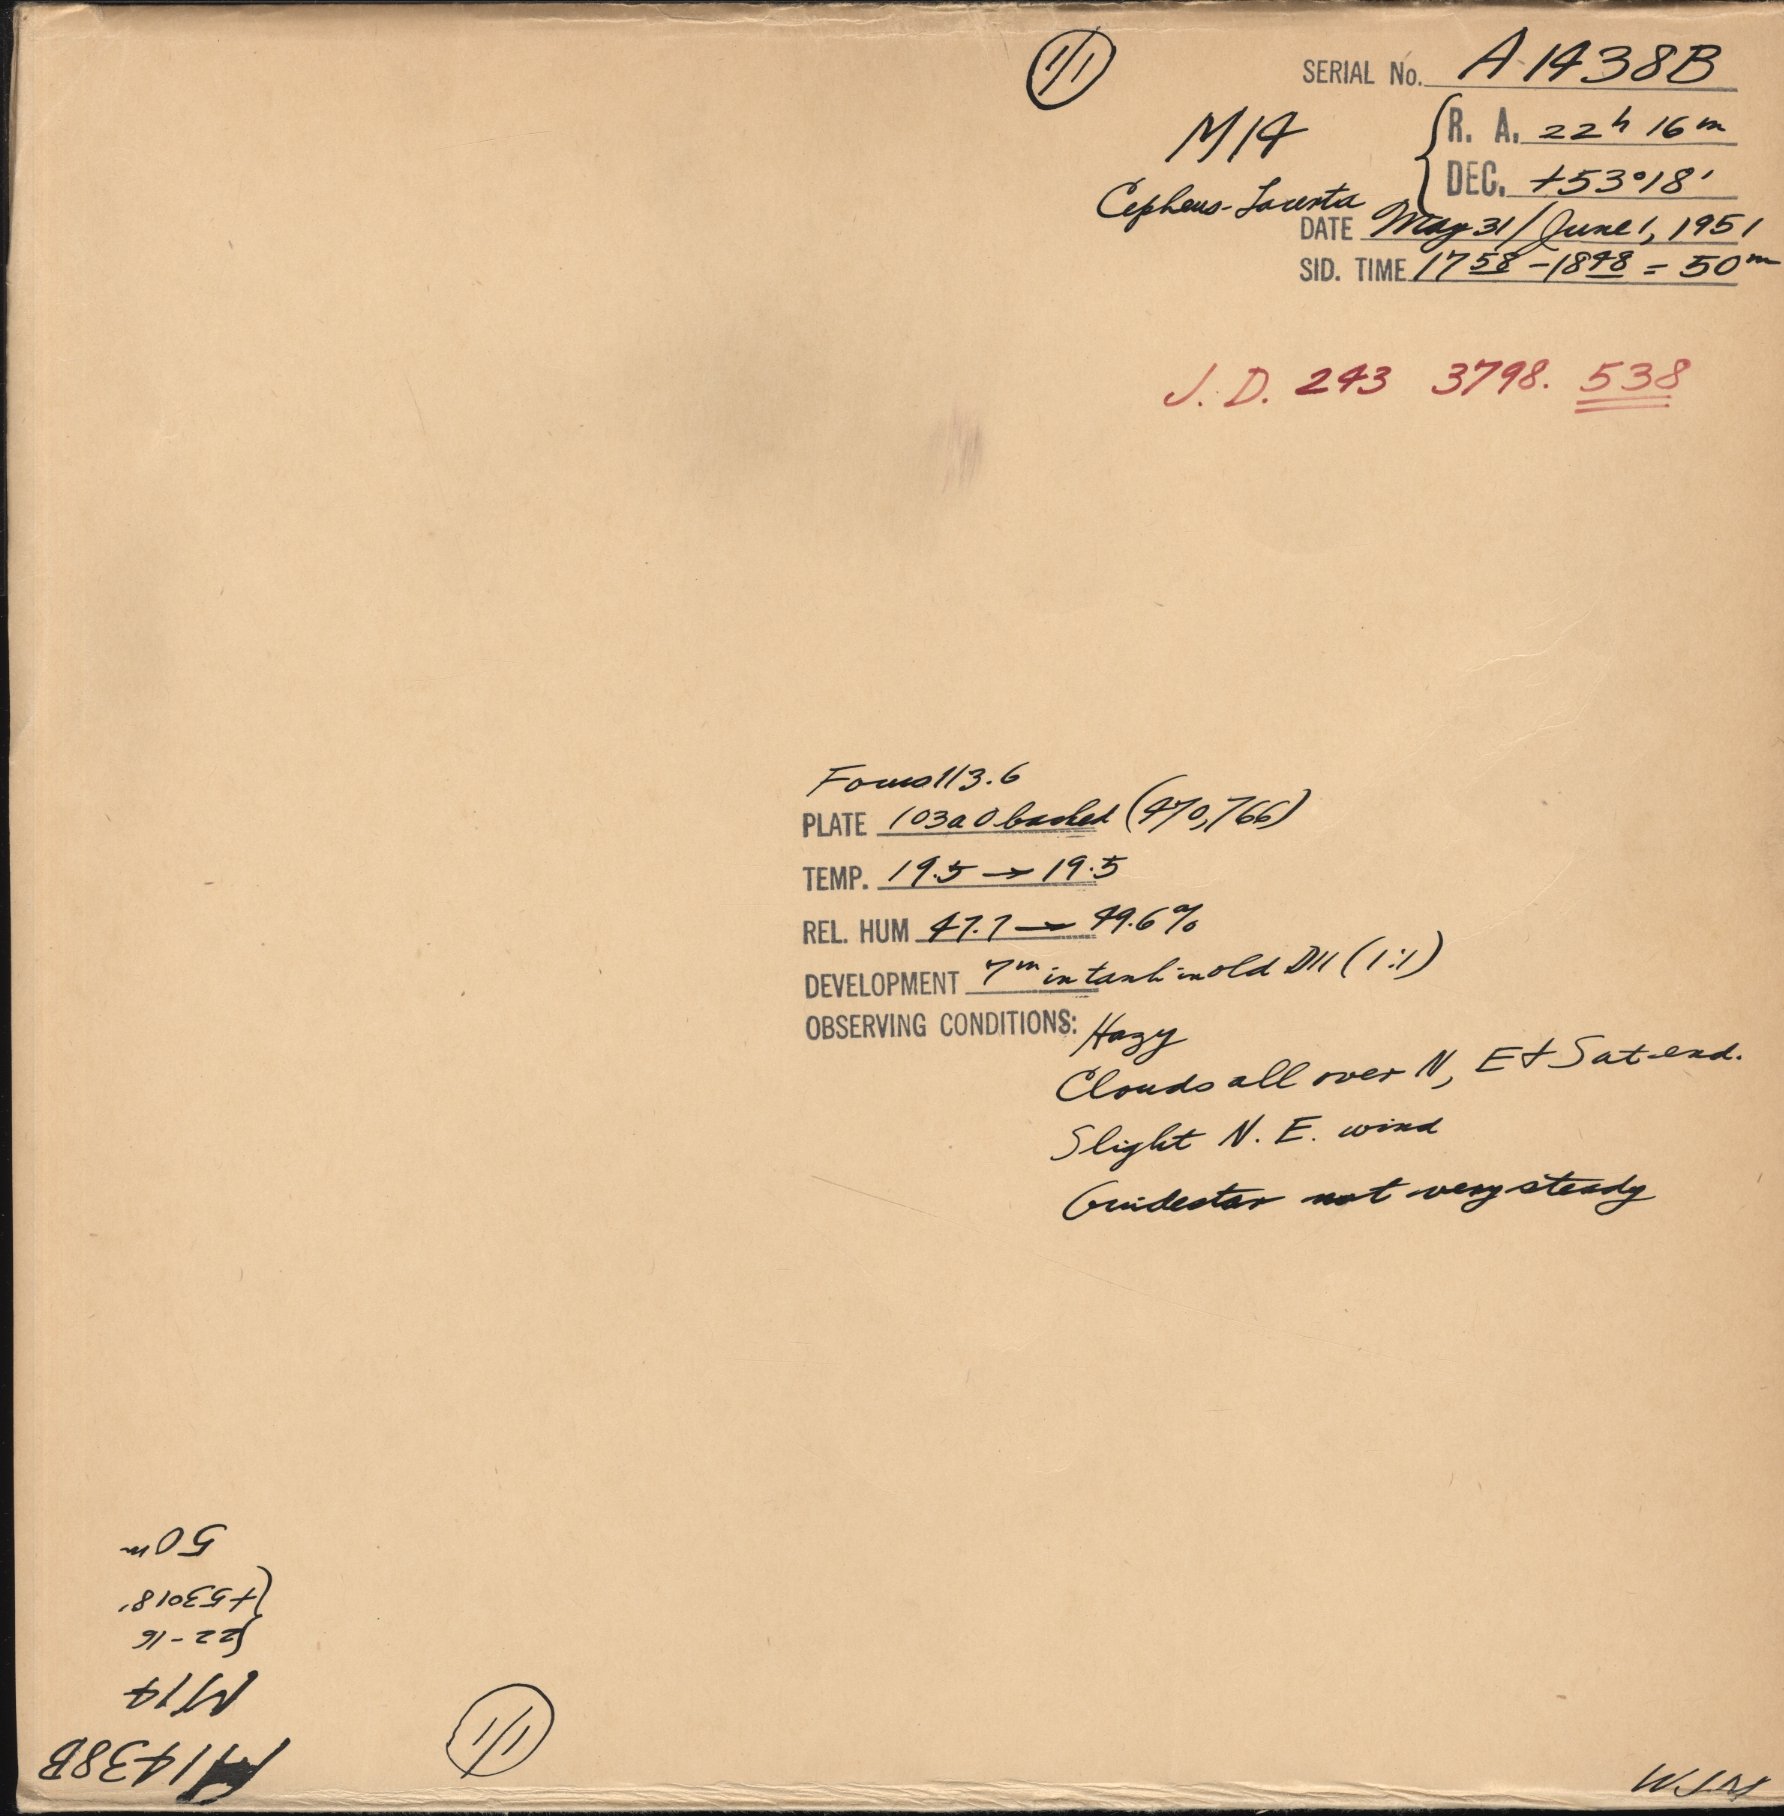 1/1
SERIAL No. A 1438B
M14
R. A. 22h 16m
DEC. +53°18'
Cepheus-Lacerta
DATE May 31/June 1, 1951
SID. TIME 17 58 - 18 48 = 50m
J. D. 243 3798. 538
Focus 113.6
PLATE 103a O backed (470,766)
TEMP. 19.5 → 19.5
REL. HUM 47.7 → 49.6%
DEVELOPMENT 7m in tank in old D11 (1:1)
OBSERVING CONDITIONS: Hazy
Clouds all over N, E + S at end.
Slight N. E. wind
Guidestar not very steady
A1438B
M14
{22-16
{+53°18'
50m
1/1